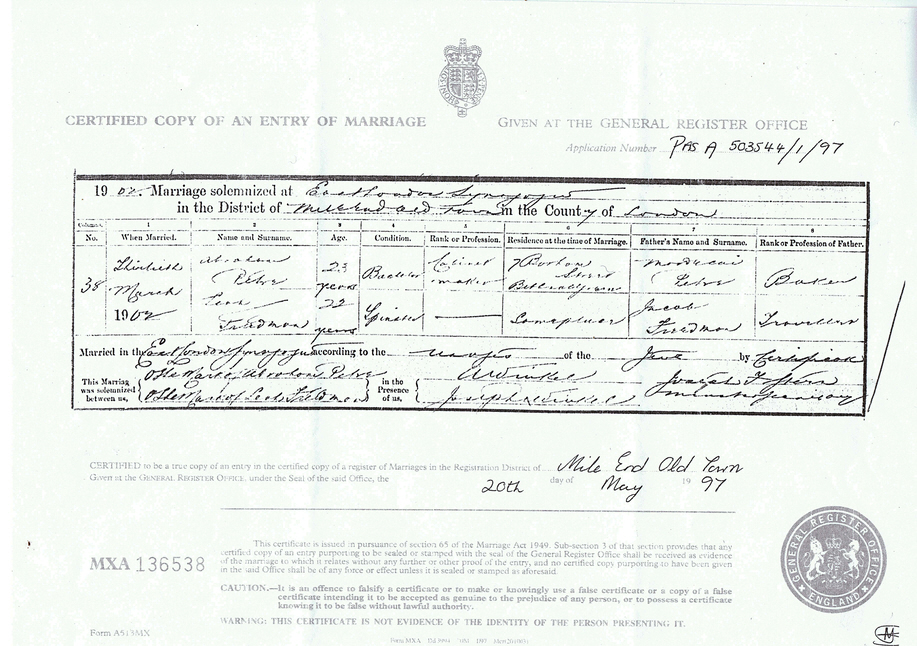 CERTIFIED COPY OF AN ENTRY OF MARRIAGE
GIVEN AT THE GENERAL REGISTER OFFICE
Application Number PAS A 503544/1/97
1902. Marriage solemnized at East London Synagogue
in the District of Mile End Old Town in the County of London
Columns:
1 2 3 4 5 6 7 8
No. When Married. Name and Surname. Age. Condition. Rank or Profession. Residence at the time of Marriage. Father's Name and Surname. Rank or Profession of Father.
38 Thirtieth March 1902
Abraham Petre 23 years Bachelor Cabinet maker 7 Street Bethnal Green Mordecai Petre Baker
Leah Friedman 22 years Spinster Same place Jacob Friedman Traveller
Married in the East London Synagogue according to the usages of the Jews by Certificate
This Marriage was solemnized between us,
Abraham Petre
of Leah Friedman
in the Presence of us,
A Winkel
Joseph Winkel
Joseph
CERTIFIED to be a true copy of an entry in the certified copy of a register of Marriages in the Registration District of Mile End Old Town
Given at the GENERAL REGISTER OFFICE, under the Seal of the said Office, the 20th day of May 1997
MXA 136538
This certificate is issued in pursuance of section 65 of the Marriage Act 1949. Sub-section 3 of that section provides that any
certified copy of an entry purporting to be sealed or stamped with the seal of the General Register Office shall be received as evidence
of the marriage to which it relates without any further or other proof of the entry, and no certified copy purporting to have been given
in the said Office shall be of any force or effect unless it is sealed or stamped as aforesaid.
CAUTION.—It is an offence to falsify a certificate or to make or knowingly use a false certificate or a copy of a false
certificate intending it to be accepted as genuine to the prejudice of any person, or to possess a certificate
knowing it to be false without lawful authority.
WARNING: THIS CERTIFICATE IS NOT EVIDENCE OF THE IDENTITY OF THE PERSON PRESENTING IT.
GENERAL REGISTER OFFICE
ENGLAND
Form A513MX
Form MXA